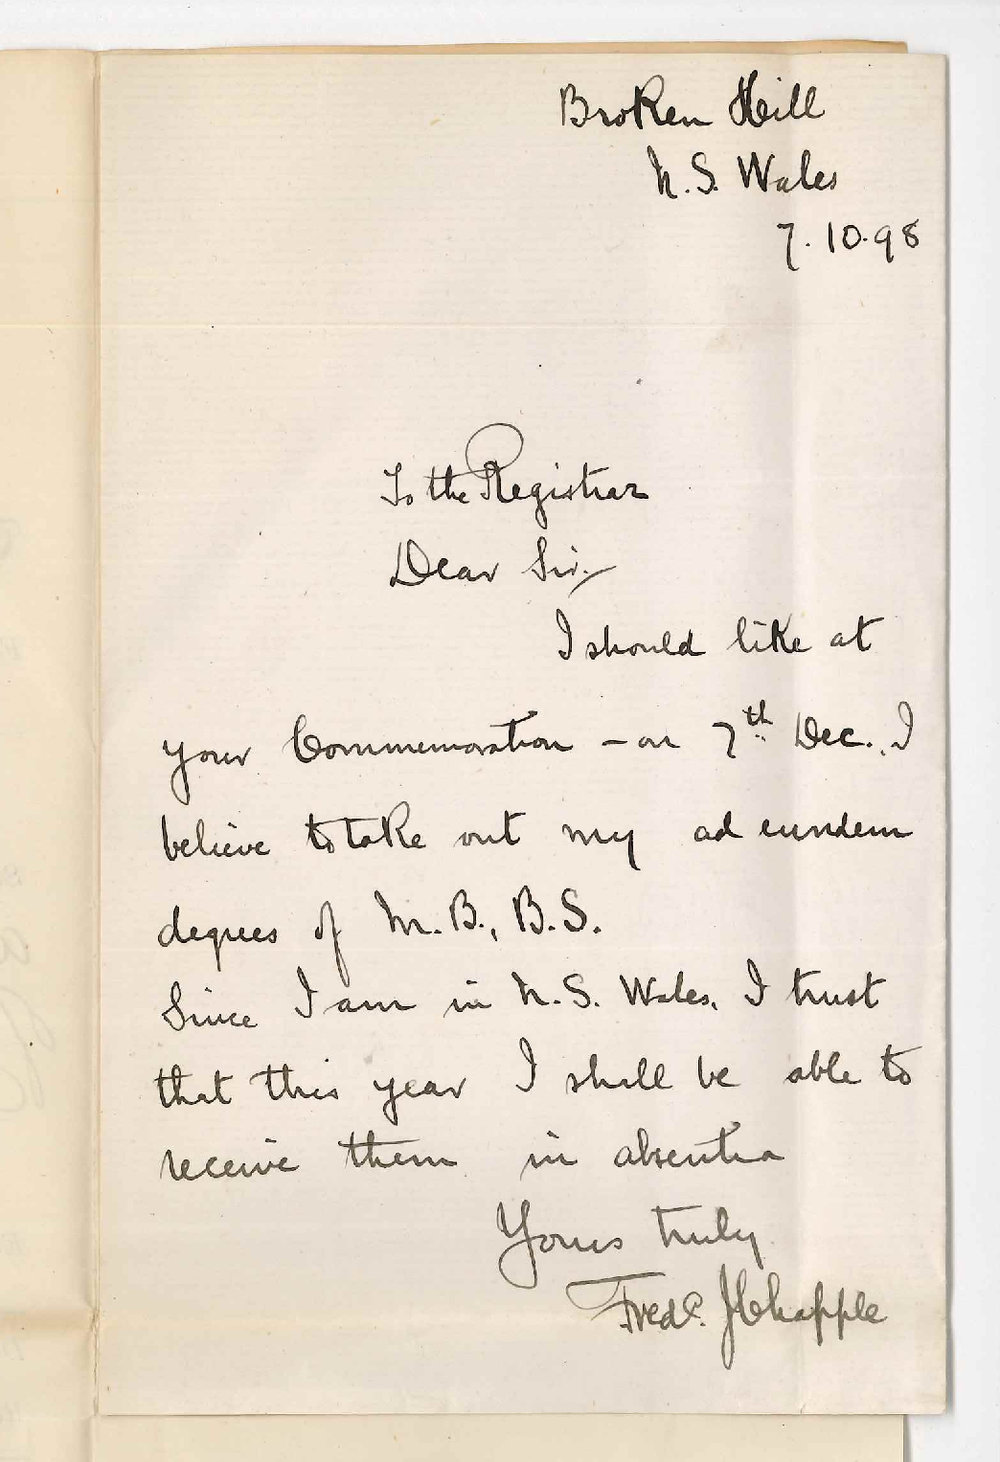 Broken Hill
N. S. Wales
7. 10. 98
To the Registrar
Dear Sir,
I should like at
your Commemoration – on 7th Dec., I
believe to take out my ad eundem
degrees of M. B., B. S.
Since I am in N. S. Wales, I trust
that this year I shall be able to
receive them in absentia
Yours truly
Fredc. J Chapple